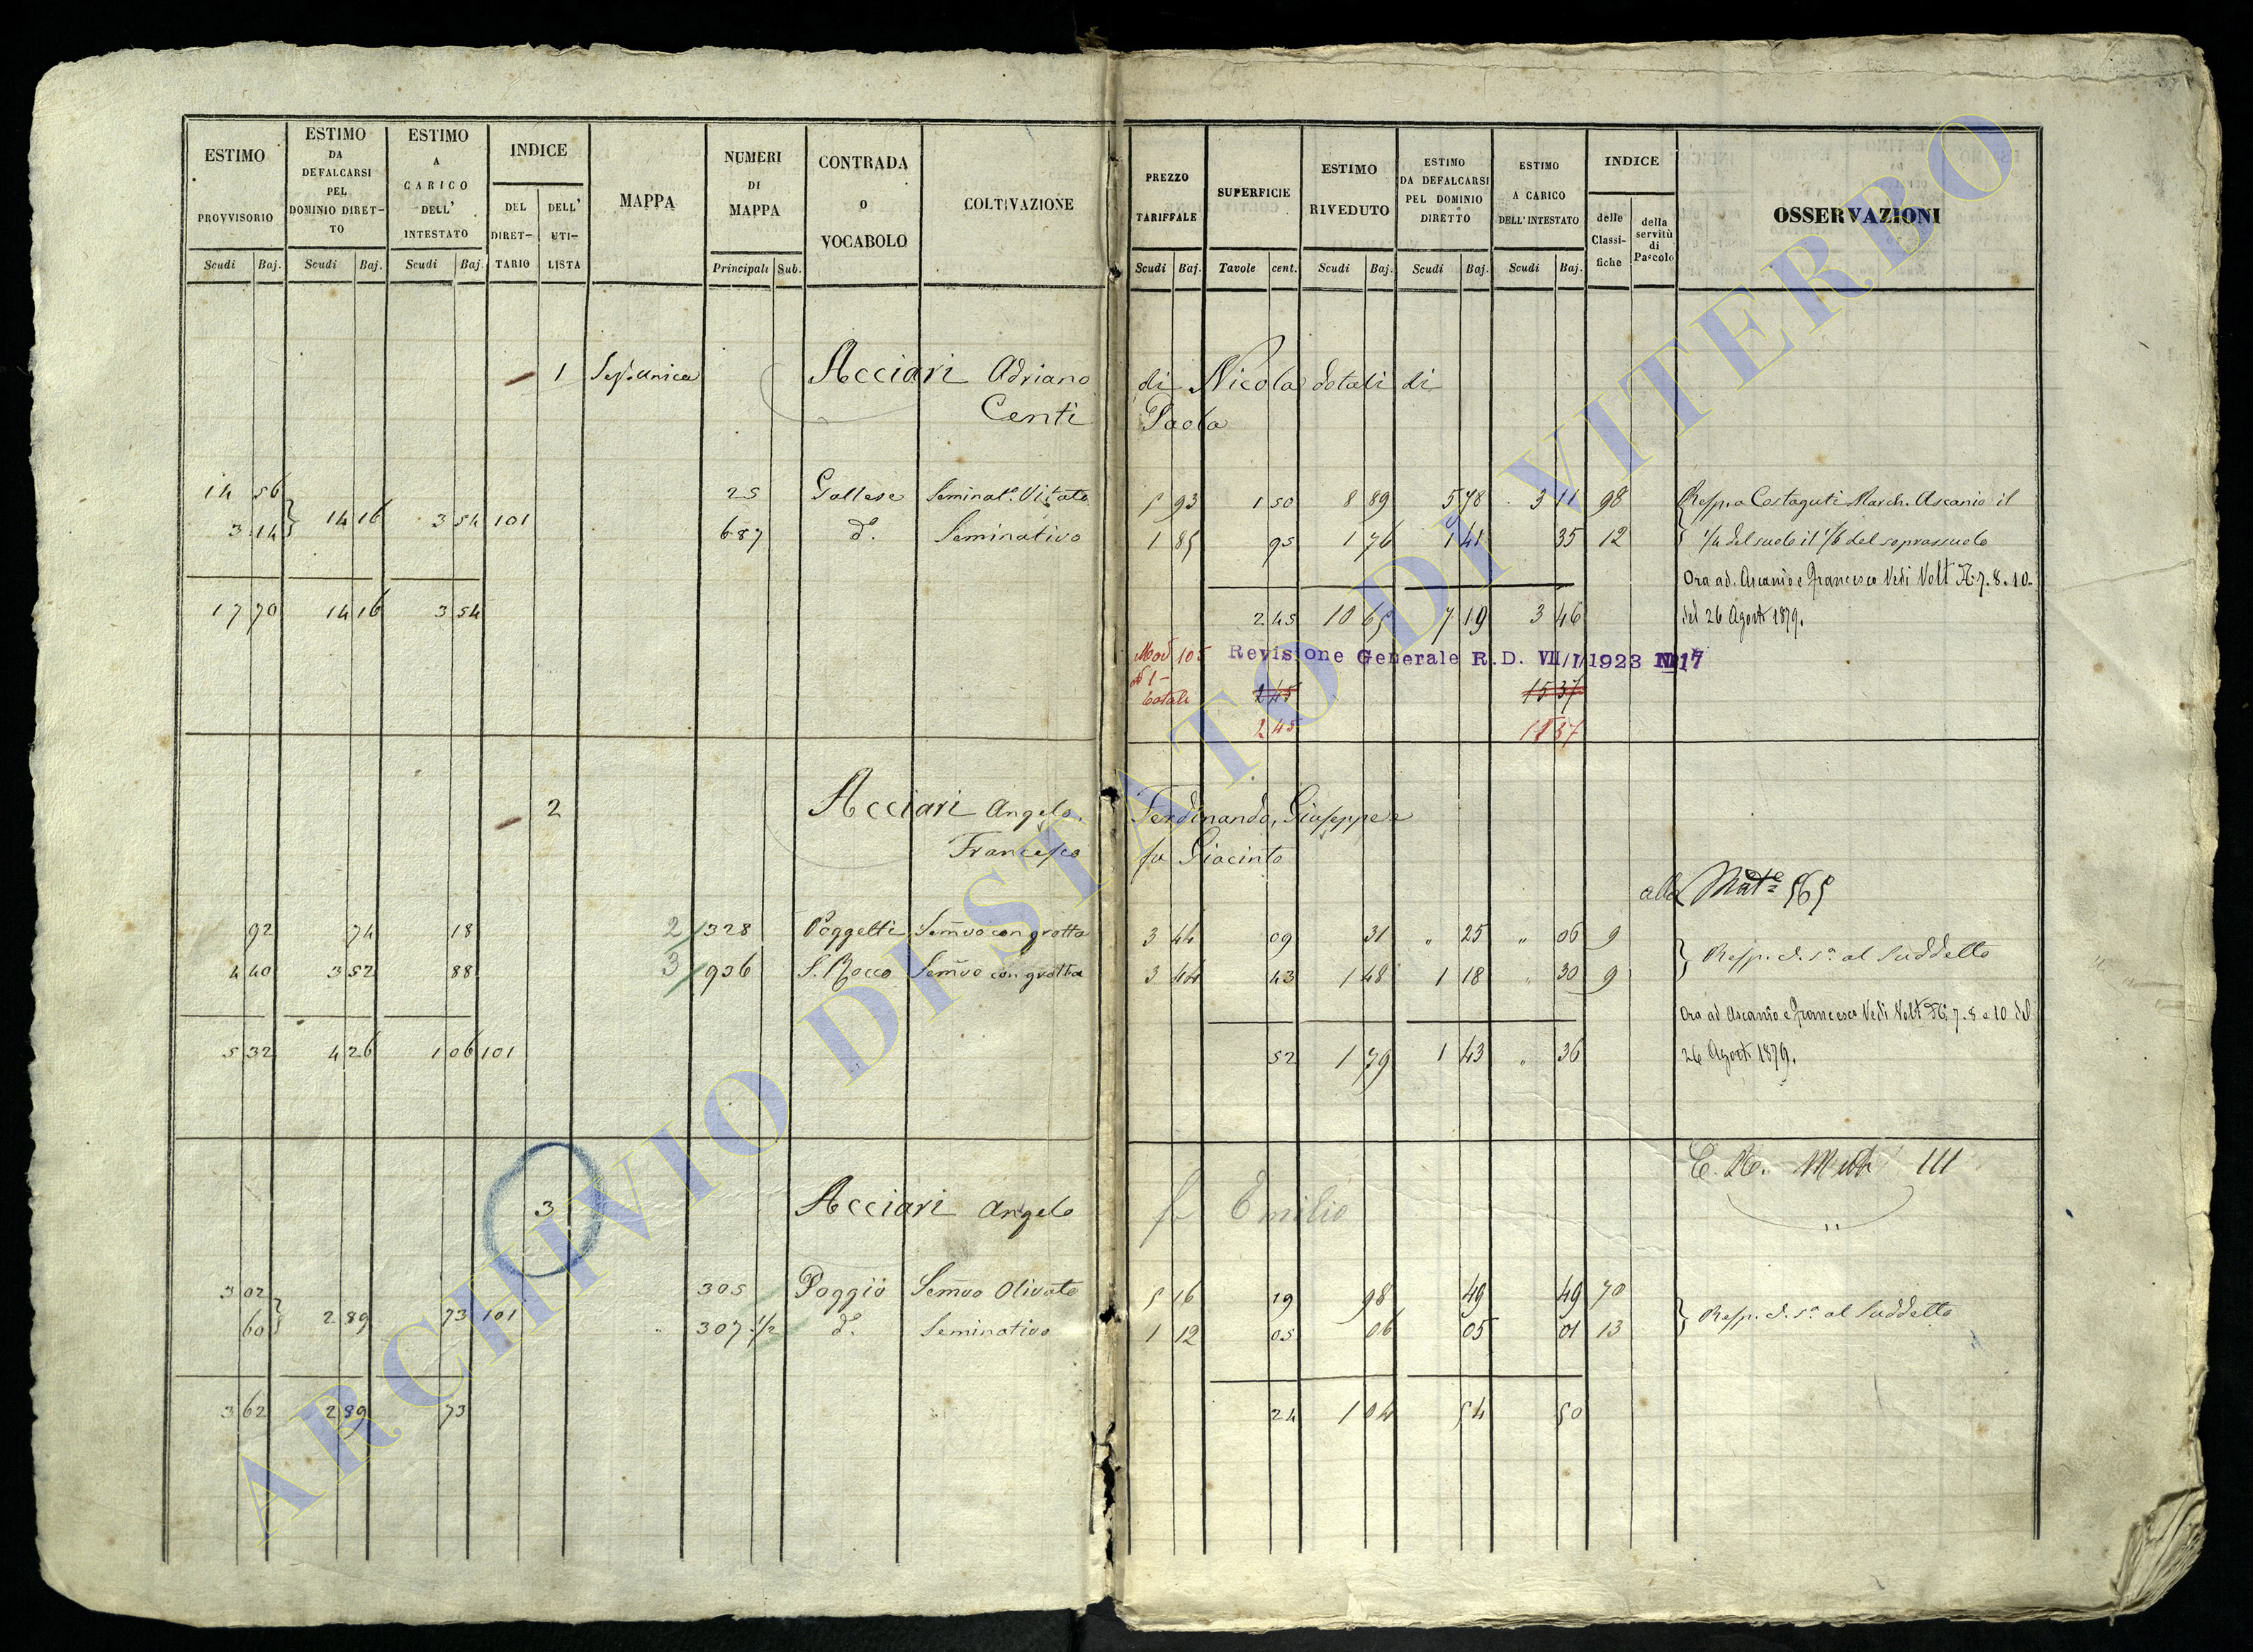 ESTIMO PROVVISORIO
Scudi Baj.
ESTIMO DA DEFALCARSI PEL DOMINIO DIRET-TO
Scudi Baj.
ESTIMO A CARICO DELL' INTESTATO
Scudi Baj.
INDICE
DEL DIRET-TARIO
DELL' UTI-LISTA
MAPPA
NUMERI DI MAPPA
Principali Sub.
CONTRADA O VOCABOLO
COLTIVAZIONE
PREZZO TARIFFALE
Scudi Baj.
SUPERFICIE
Tavole cent.
ESTIMO RIVEDUTO
Scudi Baj.
ESTIMO DA DEFALCARSI PEL DOMINIO DIRETTO
Scudi Baj.
ESTIMO A CARICO DELL' INTESTATO
Scudi Baj.
INDICE
delle Classi-fiche
della servitù di Pascolo
OSSERVAZIONI
1 Sez. Unica Acciari Adriano di Nicola dotali di
Centi Paola
14 56 25 Gallese Seminat. Vitato 5 93 1 50 8 89 5 78 3 11 98 Resp. a Costaguti March. Ascanio il
14 16 3 54 101
3 14 687 d. Seminativo 1 85 95 1 76 1 41 35 12 1/4 del suolo il 1/6 del soprassuolo
Ora ad. Ascanio e Francesco Vedi Volt N. 7. 8. 10.
17 70 14 16 3 54 2 45 10 65 7 19 3 46 del 26 Agosto 1879.
Mod 105 Revisione Generale R.D. VII/I/1923 N 17
N 1
totale 2 45 15 37
2 45 15 37
2 Acciari Angelo, Ferdinando, Giuseppe e
Francesco fu Giacinto
alla Mat. 565
92 74 18 2 328 Poggetti Semvo con grotta 3 44 09 31 " 25 " 06 9
Resp. c. s. al Suddetto
4 40 3 52 88 3 936 S. Rocco Semvo con grotta 3 44 43 1 48 1 18 " 30 9
Ora ad Ascanio e Francesco Vedi Volt N. 7. 8 e 10 del
5 32 4 26 1 06 101 52 1 79 1 43 " 36 26 Agosto 1879.
111
3 Acciari Angelo fu Emilio
3 02 305 Poggio Semvo Olivato 5 16 19 98 49 49 70
2 89 73 101 Resp. c. s. al Suddetto
60 307 1/2 d. Seminativo 1 12 05 06 05 01 13
3 62 2 89 73 24 1 04 54 50
ARCHIVIO DI STATO DI VITERBO